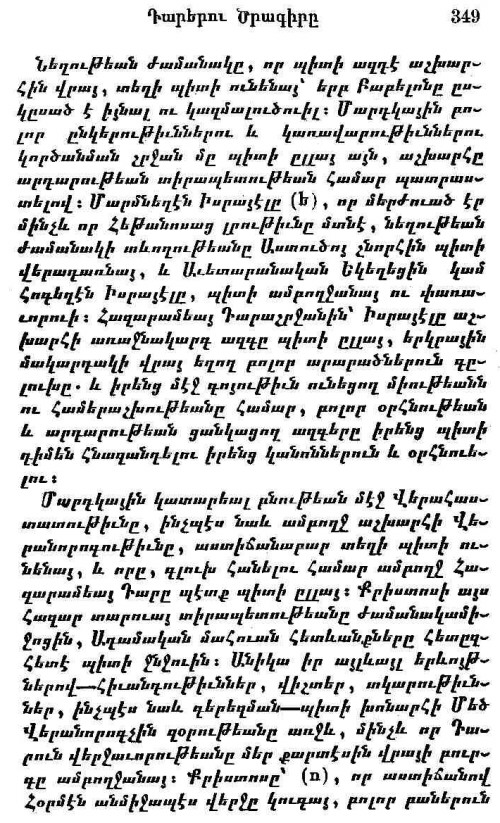 Դարերու Ծրագիրը 349
Նեղութեան ժամանակը, որ պիտի ազդէ աշխար-
հին վրայ, տեղի պիտի ունենայ՝ երբ Բաբելոնը ըս-
կըսած է իյնալ ու կազմալուծուիլ։ Մարդկային բո-
լոր ընկերութիւններու և կառավարութիւններու
կործանման շրջան մը պիտի ըլլայ այն, աշխարհը
արդարութեան տիրապետութեան համար պատրաս-
տելով։ Մարմնեղէն Իսրայէլը (ե), որ մերժուած էր
մինչև որ Հեթանոսաց լրութիւնը մտնէ, նեղութեան
ժամանակի տևողութեանը Աստուծոյ շնորհին պիտի
վերադառնայ, և Աւետարանական Եկեղեցին կամ
Հոգեղէն Իսրայէլը, պիտի ամբողջանայ ու փառա-
ւորուի։ Հազարամեայ Դարաշրջանին՝ Իսրայէլը աշ-
խարհի առաջնակարգ ազգը պիտի ըլլայ, երկրային
մակարդակի վրայ եղող բոլոր արարածներուն գը-
լուխը. և իրենց մէջ գոյութիւն ունեցող միութեանն
ու համերաշխութեանը համար, բոլոր օրհնութեան
և արդարութեան ցանկացող ազգերը իրենց պիտի
դիմեն հնազանդելու իրենց կանոններուն և օրհնուե-
լու։
Մարդկային կատարեալ բնութեան մէջ Վերահաս-
տատութիւնը, ինչպէս նաև ամբողջ աշխարհի Վե-
րանորոգութիւնը, աստիճանաբար տեղի պիտի ու-
նենայ, և որը, գլուխ հանելու համար ամբողջ Հա-
զարամեայ Դարը պէտք պիտի ըլլայ։ Քրիստոսի այս
Հազար տարուայ տիրապետութեանը ժամանակամի-
ջոցին, Ադամական մահուան հետևանքները հետըզ-
հետէ պիտի ջնջուին։ Անիկա իր այլևայլ երևոյթ-
ներով—հիւանդութիւններ, վիշտեր, տկարութիւն-
ներ, ինչպէս նաև գերեզման—պիտի խոնարհի Մեծ
Վերանորոգչին զօրութեանը առջև, մինչև որ Դա-
րուն վերջաւորութեանը մեր քարտէսին վրայի բուր-
գը ամբողջանայ։ Քրիստոսը՝ (ո), որ աստիճանով
Հօրմէն անմիջապէս վերջը կուգայ, բոլոր բաներուն